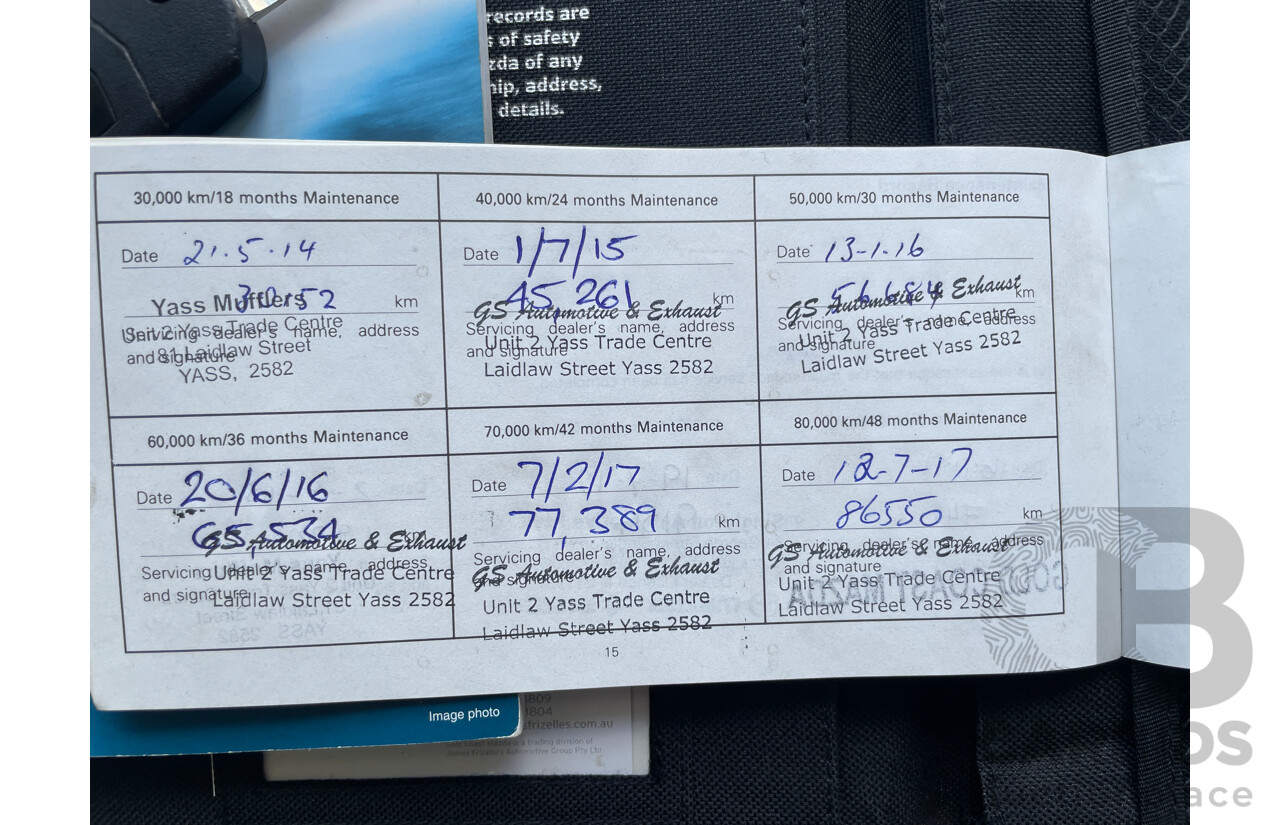 records are
s of safety
zda of any
ip, address,
details.
30,000 km/18 months Maintenance
Date 21.5.14
km
Yass Mufflers
Servicing dealer's name, address
and signature
Unit 2 Yass Trade Centre
81 Laidlaw Street
YASS, 2582
40,000 km/24 months Maintenance
Date 1/7/15
45,261 km
GS Automotive & Exhaust
Servicing dealer's name, address
and signature
Unit 2 Yass Trade Centre
Laidlaw Street Yass 2582
50,000 km/30 months Maintenance
Date 13-1-16
56684 km
GS Automotive & Exhaust
Servicing dealer's name, address
and signature
Unit 2 Yass Trade Centre
Laidlaw Street Yass 2582
60,000 km/36 months Maintenance
Date 20/6/16
65,534 km
GS Automotive & Exhaust
Servicing dealer's name, address
and signature
Unit 2 Yass Trade Centre
Laidlaw Street Yass 2582
70,000 km/42 months Maintenance
Date 7/2/17
77,389 km
Servicing dealer's name, address
and signature
GS Automotive & Exhaust
Unit 2 Yass Trade Centre
Laidlaw Street Yass 2582
80,000 km/48 months Maintenance
Date 12-7-17
86550 km
Servicing dealer's name, address
and signature
GS Automotive & Exhaust
Unit 2 Yass Trade Centre
Laidlaw Street Yass 2582
GOLD COAST MAZDA
15
Image photo
1809
1804
sfrizelles.com.au
Gold Coast Mazda is a trading division of
James Frizelle's Automotive Group Pty Ltd
B
os
ace